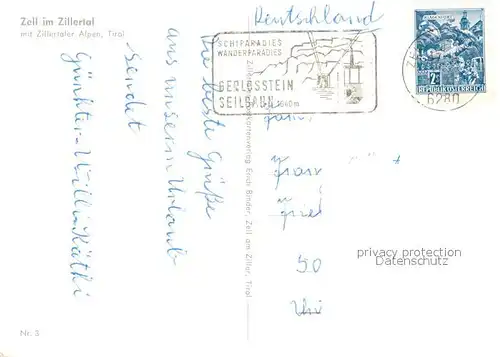 Zell im Zillertal
mit Zillertaler Alpen, Tirol
Deutschland
SCHIPARADIES
WANDERPARADIES
GERLOSSTEIN
SEILBAHN
1640 m
6280
KLAGENFURT
S 2
REPUBLIK ÖSTERREICH
Die beste Grüße
aus unserem Urlaub
sendet
Günther-Willi-Käthi
Ansichtskartenverlag Erich Binder, Zell am Ziller, Tirol
50
privacy protection
Datenschutz
Nr. 3